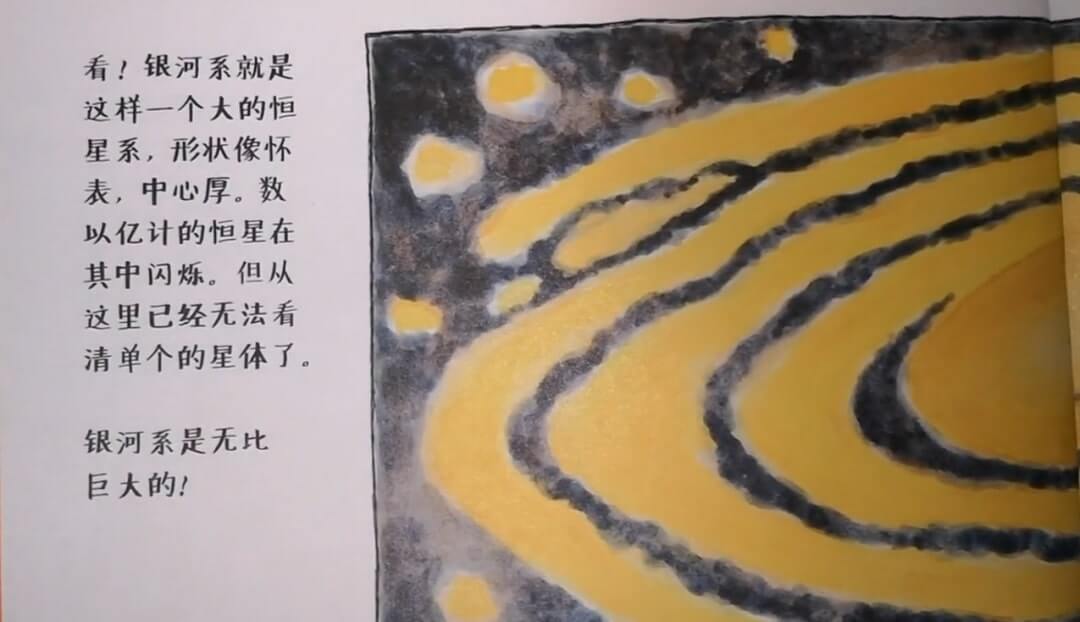 看！银河系就是
这样一个大的恒
星系，形状像怀
表，中心厚。数
以亿计的恒星在
其中闪烁。但从
这里已经无法看
清单个的星体了。
银河系是无比
巨大的！